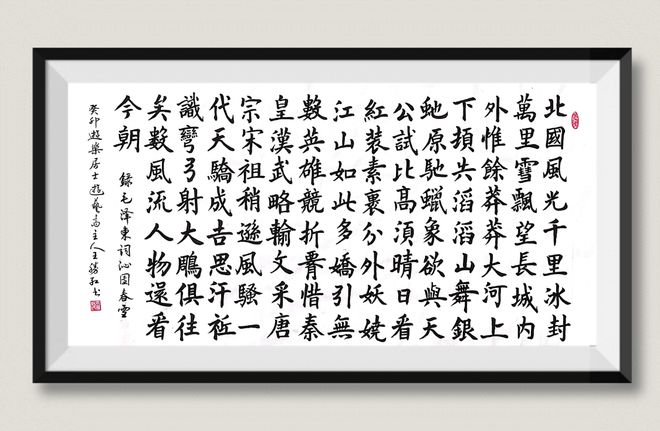 北國風光千里冰封
萬里雪飄望長城内
外惟餘莽莽大河上
下頓失滔滔山舞銀
虵原馳蠟象欲與天
公試比高須晴日看
紅裝素裹分外妖嬈
江山如此多嬌引無
數英雄競折腰惜秦
皇漢武略輸文采唐
宗宋祖稍遜風騷一
代天驕成吉思汗祗
識彎弓射大鵰俱往
矣數風流人物還看
今朝 錄毛澤東詞沁園春雪
癸卯遊樂居士遊藝齋主人王勝